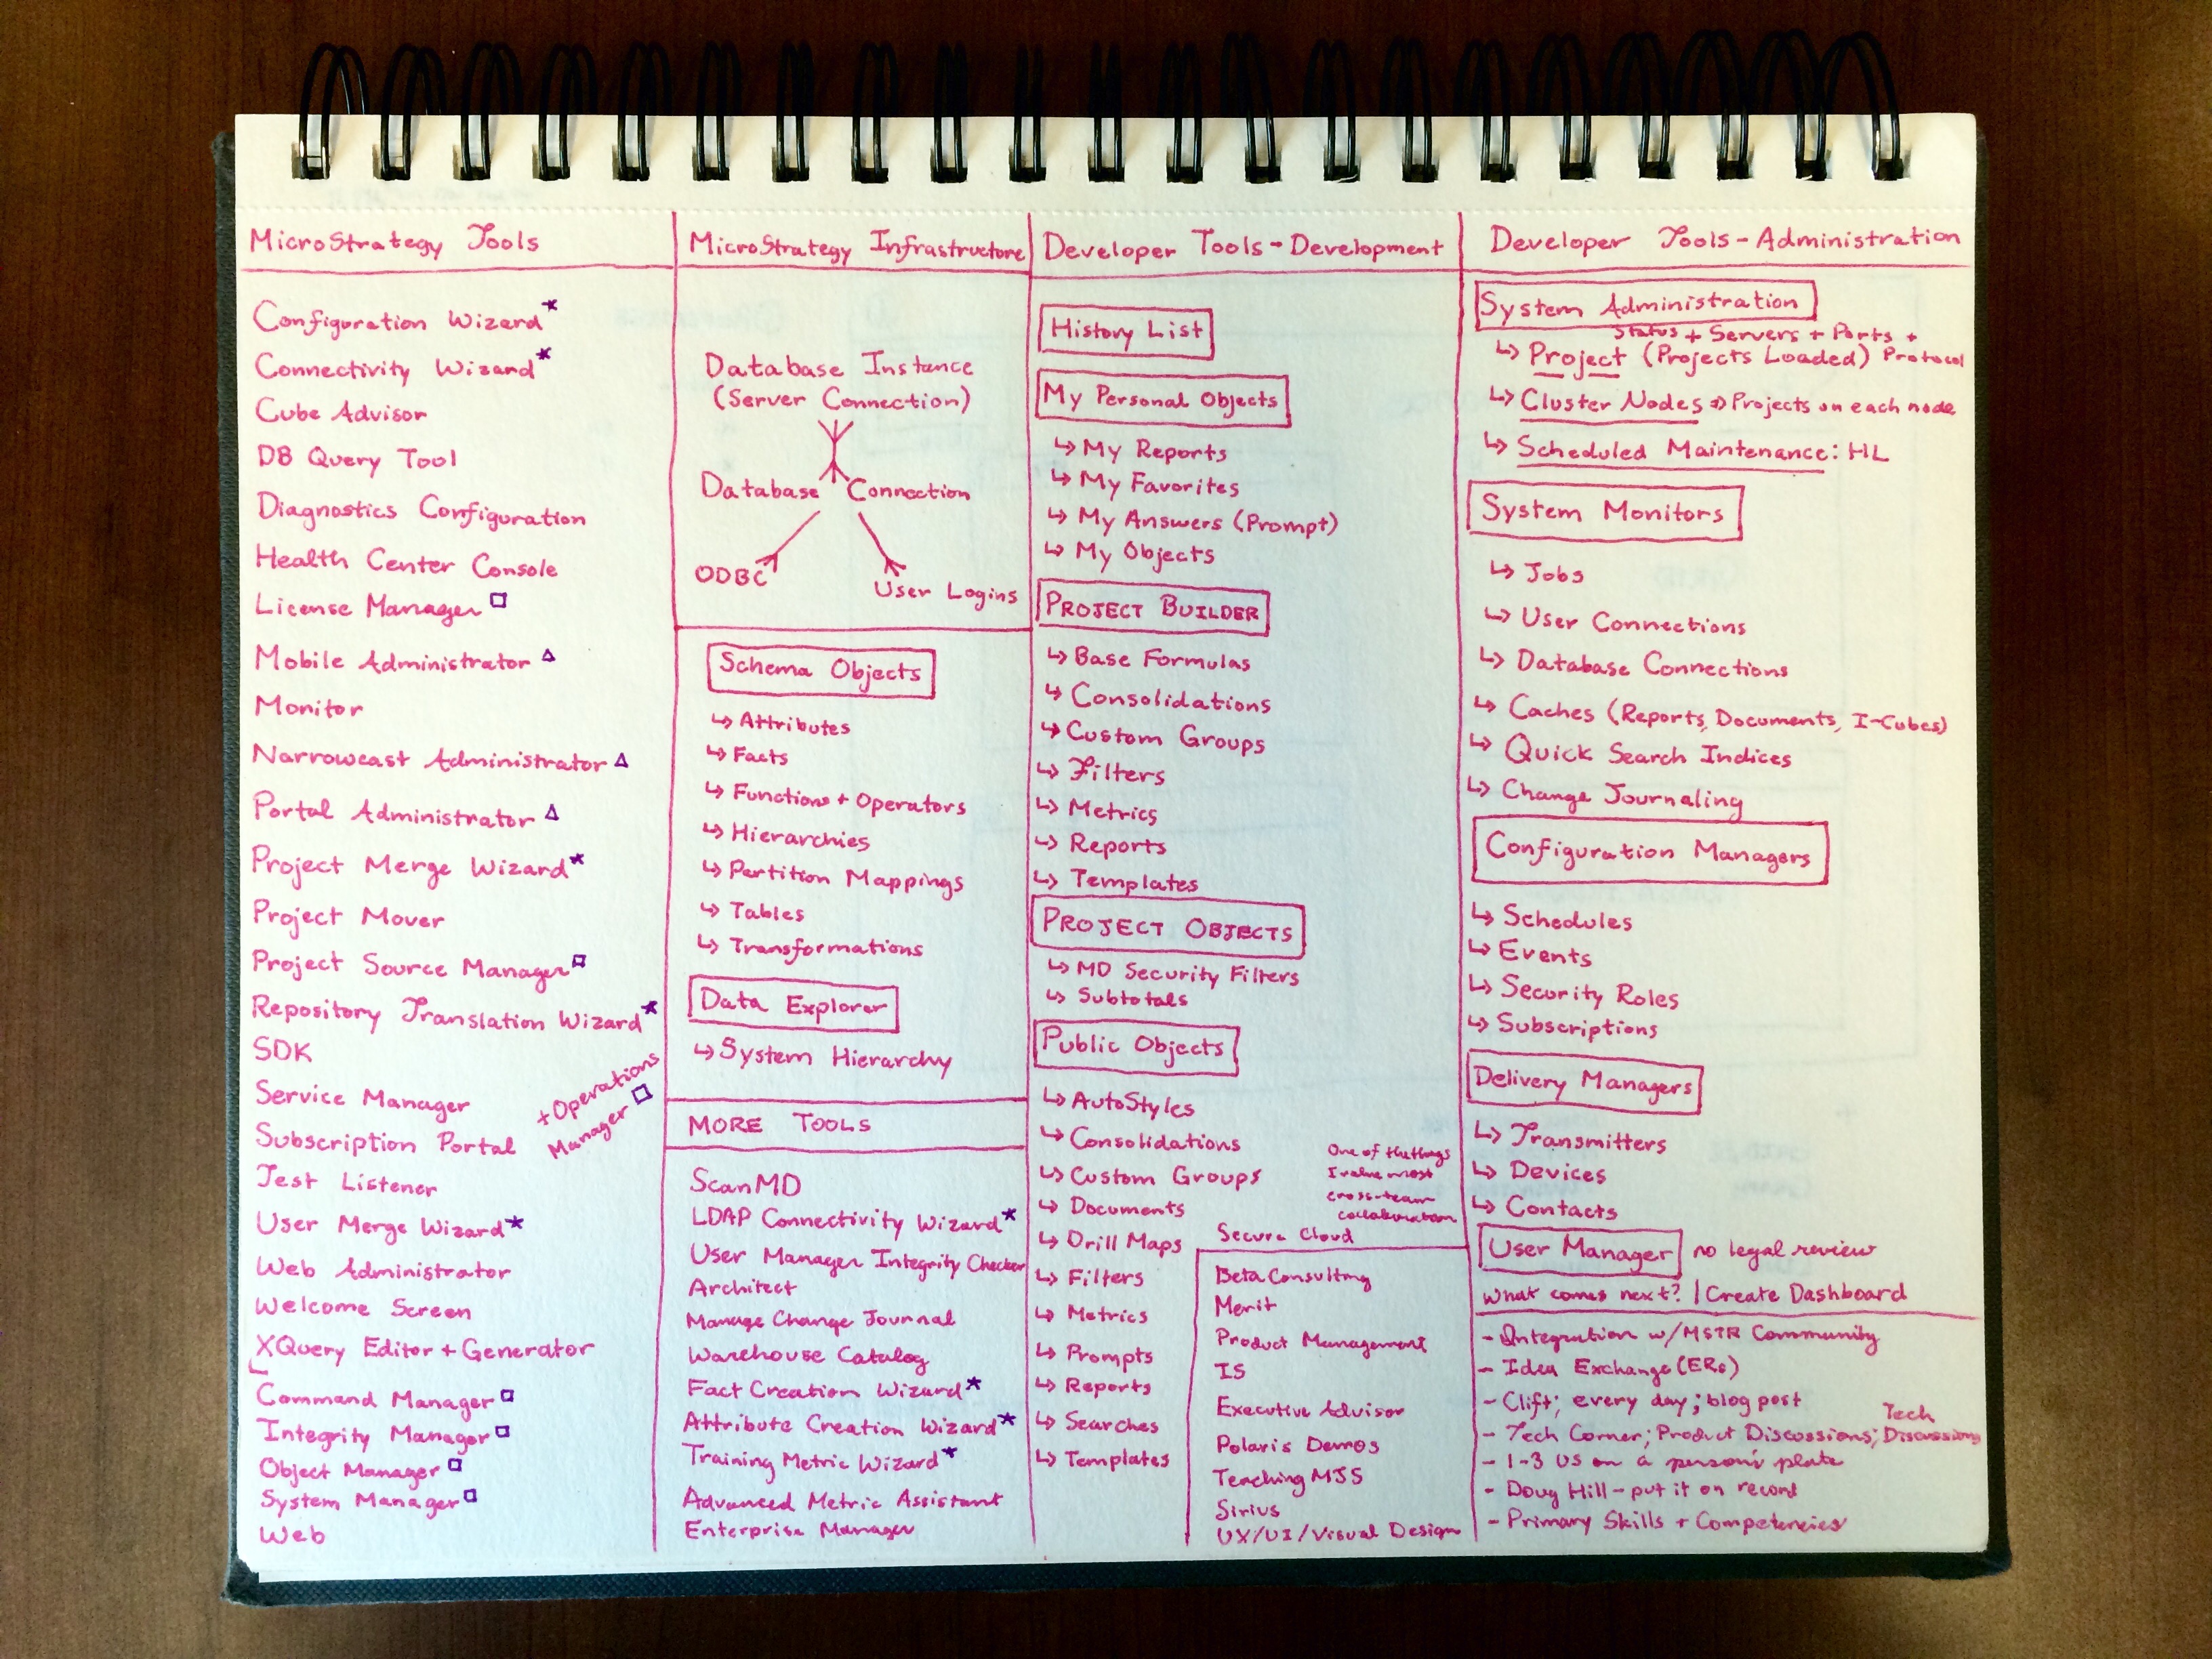 MicroStrategy Tools
Configuration Wizard*
Connectivity Wizard*
Cube Advisor
DB Query Tool
Diagnostics Configuration
Health Center Console
License Manager □
Mobile Administrator △
Monitor
Narrowcast Administrator △
Portal Administrator △
Project Merge Wizard*
Project Mover
Project Source Manager □
Repository Translation Wizard*
SDK
Service Manager
+ Operations
Manager □
Subscription Portal
Test Listener
User Merge Wizard*
Web Administrator
Welcome Screen
XQuery Editor + Generator
Command Manager □
Integrity Manager □
Object Manager □
System Manager □
Web
MicroStrategy Infrastructure
Database Instance
(Server Connection)
Database Connection
ODBC
User Logins
Schema Objects
↳ Attributes
↳ Facts
↳ Functions + Operators
↳ Hierarchies
↳ Partition Mappings
↳ Tables
↳ Transformations
Data Explorer
↳ System Hierarchy
MORE TOOLS
ScanMD
LDAP Connectivity Wizard*
User Manager Integrity Checker
Architect
Manage Change Journal
Warehouse Catalog
Fact Creation Wizard*
Attribute Creation Wizard*
Training Metric Wizard*
Advanced Metric Assistant
Enterprise Manager
Developer Tools - Development
History List
My Personal Objects
↳ My Reports
↳ My Favorites
↳ My Answers (Prompt)
↳ My Objects
PROJECT BUILDER
↳ Base Formulas
↳ Consolidations
↳ Custom Groups
↳ Filters
↳ Metrics
↳ Reports
↳ Templates
PROJECT OBJECTS
↳ MD Security Filters
↳ Subtotals
Public Objects
↳ AutoStyles
↳ Consolidations
↳ Custom Groups
↳ Documents
↳ Drill Maps
↳ Filters
↳ Metrics
↳ Prompts
↳ Reports
↳ Searches
↳ Templates
One of the things
I value most
cross-team
collaboration
Secure Cloud
Beta Consulting
Merit
Product Management
IS
Executive Advisor
Polaris Demos
Teaching MJS
Sirius
UX/UI/Visual Design
Developer Tools - Administration
System Administration
Status + Servers + Ports +
↳ Project (Projects Loaded) Protocol
↳ Cluster Nodes ⇒ Projects on each node
↳ Scheduled Maintenance: HL
System Monitors
↳ Jobs
↳ User Connections
↳ Database Connections
↳ Caches (Reports, Documents, I-Cubes)
↳ Quick Search Indices
↳ Change Journaling
Configuration Managers
↳ Schedules
↳ Events
↳ Security Roles
↳ Subscriptions
Delivery Managers
↳ Transmitters
↳ Devices
↳ Contacts
User Manager no legal review
What comes next? | Create Dashboard
- Integration w/MSTR Community
- Idea Exchange (ERs)
- Clift; every day; blog post
- Tech Corner; Product Discussions; Tech Discussions
- 1-3 US on a person's plate
- Doug Hill - put it on record
- Primary Skills + Competencies